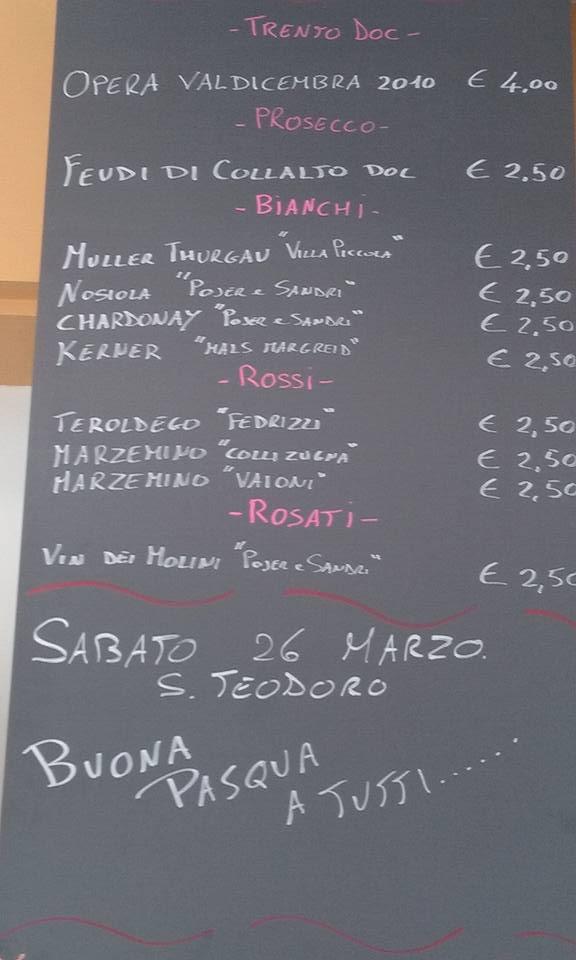 - TRENTO DOC -
OPERA VALDICEMBRA 2010 € 4,00
- PROSECCO -
FEUDI DI COLLALTO DOC € 2,50
- BIANCHI -
MULLER THURGAU "VILLA PICCOLA" € 2,50
NOSIOLA "POJER e SANDRI" € 2,50
CHARDONAY "POJER e SANDRI" € 2,50
KERNER "MALS MARGREID" € 2,50
- ROSSI -
TEROLDEGO "FEDRIZZI" € 2,50
MARZEMINO "COLLI ZUGNA" € 2,50
MARZEMINO "VAIONI" € 2,50
- ROSATI -
VIN DEI MOLINI "POJER e SANDRI" € 2,50
SABATO 26 MARZO.
S. TEODORO
BUONA
PASQUA
A TUTTI......